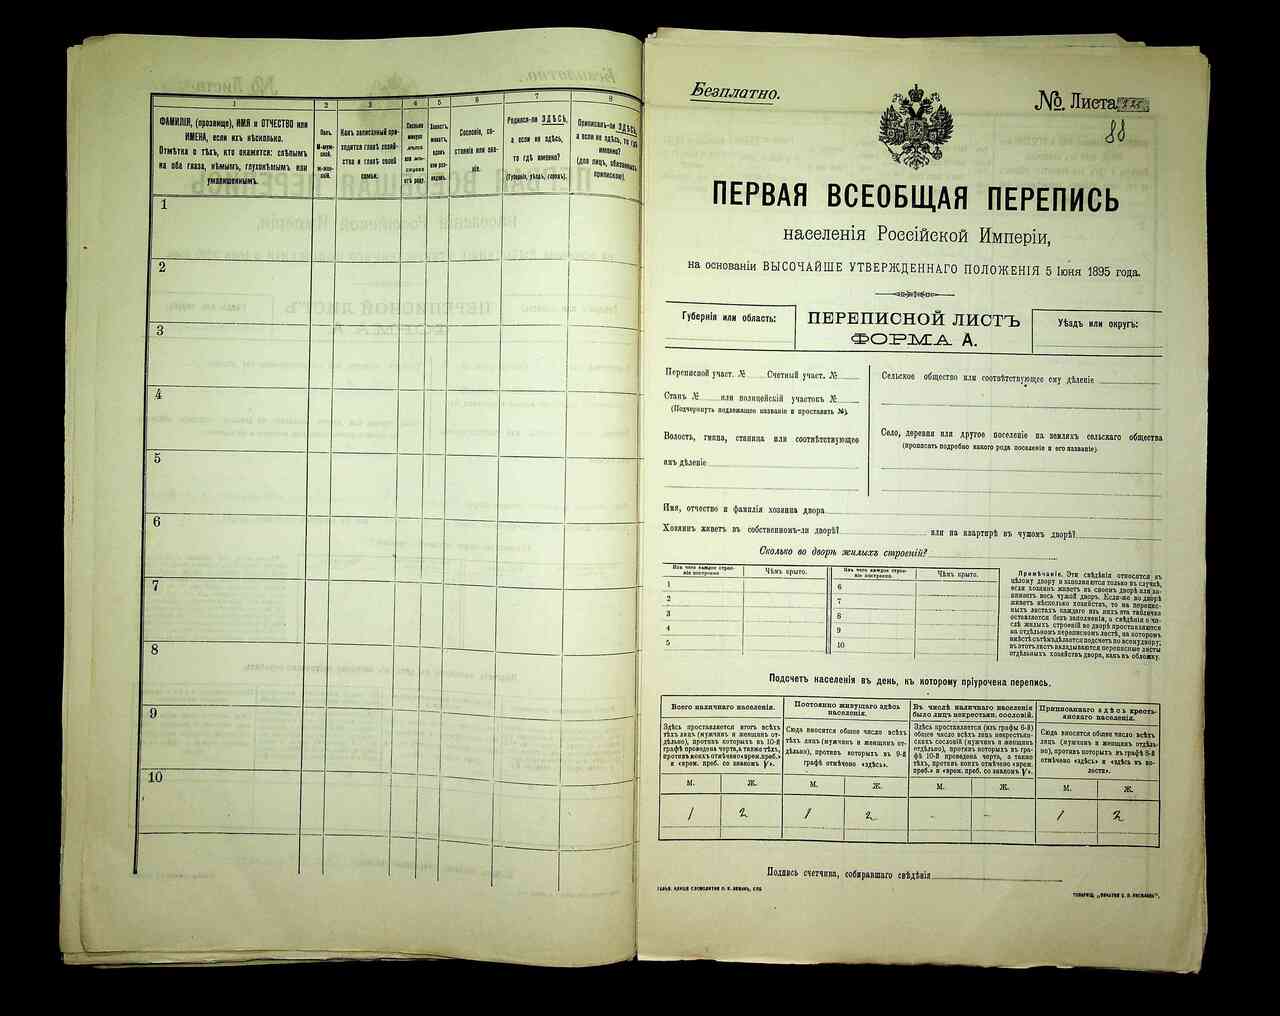 1
2
3
4
5
6
7
8
ФАМИЛІЯ, (прозвище), ИМЯ и ОТЧЕСТВО или
ИМЕНА, если ихъ нѣсколько.
Отмѣтка о тѣхъ, кто окажется: слѣпымъ
на оба глаза, нѣмымъ, глухонѣмымъ или
умалишеннымъ.
Полъ.
М-муж-
ской.
Ж-жен-
скій.
Какъ записанный при-
ходится главѣ хозяй-
ства и главѣ своей
семьи.
Сколько
минуло
лѣтъ
или мѣ-
сяцевъ
отъ роду.
Холостъ,
женатъ,
вдовъ
или раз-
веденъ.
Сословіе, со-
стояніе или зва-
ніе.
Родился-ли ЗДѢСЬ,
а если не здѣсь,
то гдѣ именно?
(Губернія, уѣздъ, городъ).
Приписанъ-ли ЗДѢСЬ,
а если не здѣсь, то гдѣ
именно?
(для лицъ, обязанныхъ
припискою).
1
2
3
4
5
6
7
8
9
10
Безплатно.
№ Листа
88
ПЕРВАЯ ВСЕОБЩАЯ ПЕРЕПИСЬ
населенія Россійской Имперіи,
на основаніи ВЫСОЧАЙШЕ УТВЕРЖДЕННАГО ПОЛОЖЕНІЯ 5 Іюня 1895 года.
Губернія или область:
ПЕРЕПИСНОЙ ЛИСТЪ
ФОРМА А.
Уѣздъ или округъ:
Переписной участ. № Счетный участ. №
Станъ № или полицейскій участокъ №
(Подчеркнуть подлежащее названіе и проставить №).
Волость, гмина, станица или соотвѣтствующее
имъ дѣленіе
Сельское общество или соотвѣтствующее ему дѣленіе
Село, деревня или другое поселеніе на земляхъ сельскаго общества
(прописать подробно какого рода поселеніе и его названіе)
Имя, отчество и фамилія хозяина двора
Хозяинъ живетъ въ собственномъ-ли дворѣ? или на квартирѣ въ чужомъ дворѣ?
Сколько во дворѣ жилыхъ строеній?
Изъ чего каждое строе-
ніе построено.
Чѣмъ крыто.
Изъ чего каждое строе-
ніе построено.
Чѣмъ крыто.
1
2
3
4
5
6
7
8
9
10
Примѣчаніе. Эти свѣдѣнія относятся къ
цѣлому двору и заполняются только въ случаѣ,
если хозяинъ живетъ въ своемъ дворѣ или за-
нимаетъ весь чужой дворъ. Если-же во дворѣ
живетъ нѣсколько хозяйствъ, то на перепис-
ныхъ листахъ каждаго изъ нихъ эта табличка
оставляется безъ заполненія, а свѣдѣнія о чи-
слѣ жилыхъ строеній во дворѣ проставляются
на отдѣльномъ переписномъ листѣ, на которомъ
вмѣстѣ съ тѣмъ дѣлается подсчетъ по всему двору;
въ этотъ листъ вкладываются переписные листы
отдѣльныхъ хозяйствъ двора, какъ въ обложку.
Подсчетъ населенія въ день, къ которому пріурочена перепись.
Всего наличнаго населенія.
Постоянно живущаго здѣсь
населенія.
Въ числѣ наличнаго населенія
было лицъ некрестьян. сословій.
Приписаннаго здѣсь кресть-
янскаго населенія.
Здѣсь проставляется итогъ всѣхъ
тѣхъ лицъ (мужчинъ и женщинъ от-
дѣльно), противъ которыхъ въ 10-й
графѣ проведена черта, а также тѣхъ,
противъ коихъ отмѣчено «врем. преб.»
и «врем. преб. со знакомъ V».
Сюда вносится общее число всѣхъ
тѣхъ лицъ (мужчинъ и женщинъ от-
дѣльно), противъ которыхъ въ 9-й
графѣ отмѣчено «здѣсь».
Здѣсь проставляется (изъ графы 6-й)
общее число всѣхъ лицъ некрестьян-
скихъ сословій (мужчинъ и женщинъ
отдѣльно), противъ которыхъ въ гра-
фѣ 10-й проведена черта, а также
тѣхъ, противъ коихъ отмѣчено «врем.
преб.» и «врем. преб. со знакомъ V».
Сюда вносится общее число всѣхъ
лицъ (мужчинъ и женщинъ отдѣль-
но), противъ которыхъ въ графѣ 8-й
отмѣчено «здѣсь» и «здѣсь въ во-
лости».
М. Ж. М. Ж. М. Ж. М. Ж.
1 2 1 2 - - 1 2
Подпись счетчика, собиравшаго свѣдѣнія